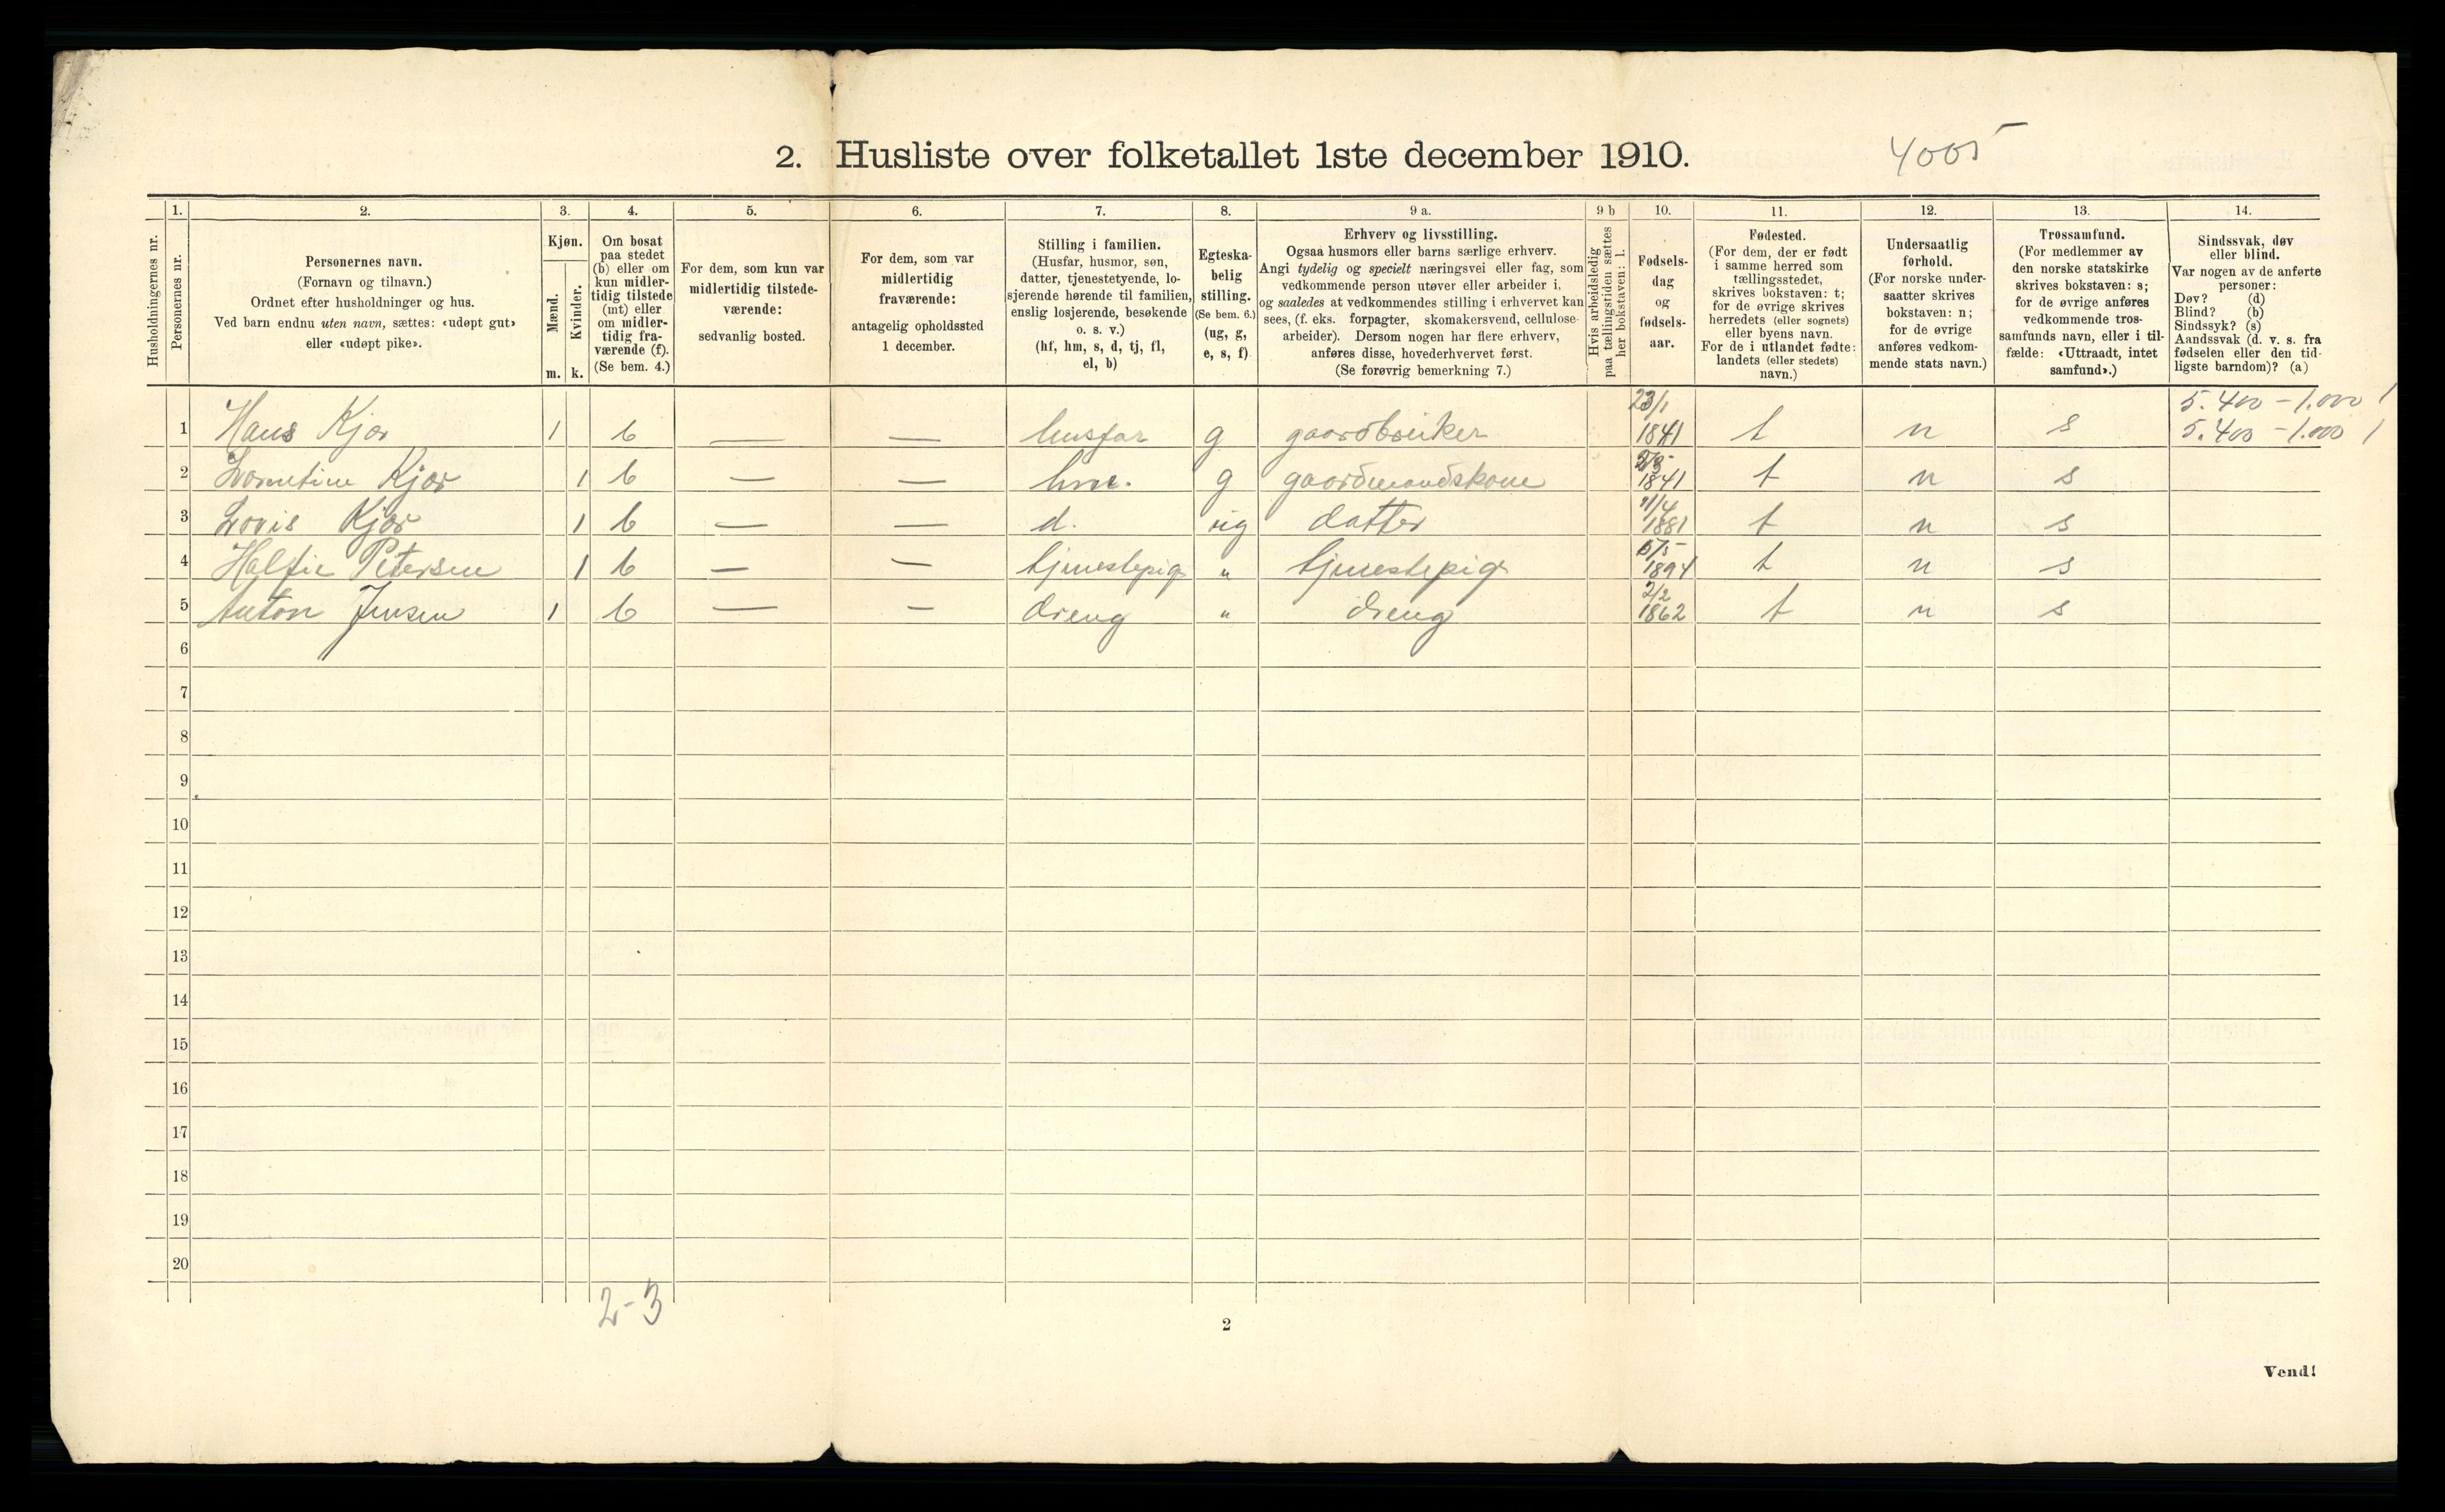 2. Husliste over folketallet 1ste december 1910.
4005
Husholdningernes nr.
1.
Personernes nr.
2.
Personernes navn.
(Fornavn og tilnavn.)
Ordnet efter husholdninger og hus.
Ved barn endnu uten navn, sættes: «udøpt gut»
eller «udøpt pike».
3.
Kjøn.
Mænd.
Kvinder.
m. k.
4.
Om bosat
paa stedet
(b) eller om
kun midler-
tidig tilstede
(mt) eller
om midler-
tidig fra-
værende (f).
(Se bem. 4.)
5.
For dem, som kun var
midlertidig tilstede-
værende:
sedvanlig bosted.
6.
For dem, som var
midlertidig
fraværende:
antagelig opholdssted
1 december.
7.
Stilling i familien.
(Husfar, husmor, søn,
datter, tjenestetyende, lo-
sjerende hørende til familien,
enslig losjerende, besøkende
o. s. v.)
(hf, hm, s, d, tj, fl,
el, b)
8.
Egteska-
belig
stilling.
(Se bem. 6.)
(ug, g,
e, s, f)
9 a.
Erhverv og livsstilling.
Ogsaa husmors eller barns særlige erhverv.
Angi tydelig og specielt næringsvei eller fag, som
vedkommende person utøver eller arbeider i,
og saaledes at vedkommendes stilling i erhvervet kan
sees, (f. eks. forpagter, skomakersvend, cellulose-
arbeider). Dersom nogen har flere erhverv,
anføres disse, hovederhvervet først.
(Se forøvrig bemerkning 7.)
9 b
Hvis arbeidsledig
paa tællingstiden sættes
her bokstaven: l.
10.
Fødsels-
dag
og
fødsels-
aar.
11.
Fødested.
(For dem, der er født
i samme herred som
tællingsstedet,
skrives bokstaven: t;
for de øvrige skrives
herredets (eller sognets)
eller byens navn.
For de i utlandet fødte:
landets (eller stedets)
navn.)
12.
Undersaatlig
forhold.
(For norske under-
saatter skrives
bokstaven: n;
for de øvrige
anføres vedkom-
mende stats navn.)
13.
Trossamfund.
(For medlemmer av
den norske statskirke
skrives bokstaven: s;
for de øvrige anføres
vedkommende tros-
samfunds navn, eller i til-
fælde: «Uttraadt, intet
samfund».)
14.
Sindssvak, døv
eller blind.
Var nogen av de anførte
personer:
Døv? (d)
Blind? (b)
Sindssyk? (s)
Aandssvak (d. v. s. fra
fødselen eller den tid-
ligste barndom)? (a)
5.400 - 1.000 1
1 Hans Kjær 1 b — — husfar g gaardbruker 23/1 1841 t n s 5.400 - 1.000 1
2 Kjær 1 b — — hm. g gaardmandskone 1841 t n s
3 Lovis Kjær 1 b — — d. ug datter 11/4 1881 t n s
4 Petersen 1 b — — tjenestepige " tjenestepige 1894 t n s
5 Anton Jensen 1 b — — dreng " dreng 2/2 1862 t n s
6
7
8
9
10
11
12
13
14
15
16
17
18
19
20
2-3
2
Vend!